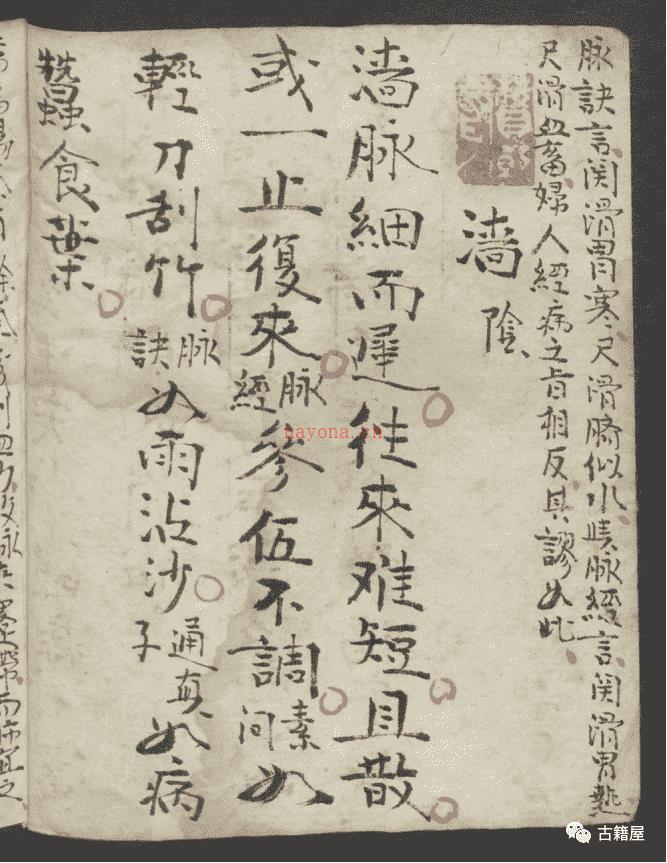 脉訣言関滑胃寒尺滑臍似氷脉經言関滑胃熱
尺滑血畜婦人經病之旨相反其謬如此
濇陰
濇脉細而遲往來难短且散
或一止復來脉經參伍不調素问如
輕刀刮竹脉訣如雨沾沙通真子如病
蠶食葉
nayona.cn
古籍屋